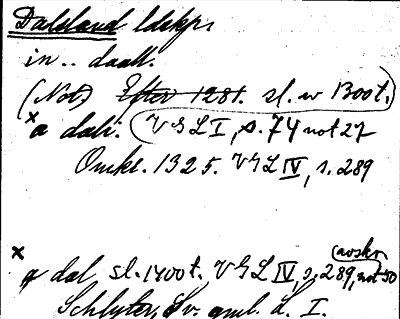 Dalsland ldskp.
in .. daall.
(Not) Efter 1281. sl. av 1300 t.
x a dali. (VGL I, s. 74 not 27
Omkr. 1325. VGL IV, s. 289
(avskr.
x a dal sl. 1400 t. VGL IV, s. 289, not 50
Schlyter, Sv. aml. L. I.